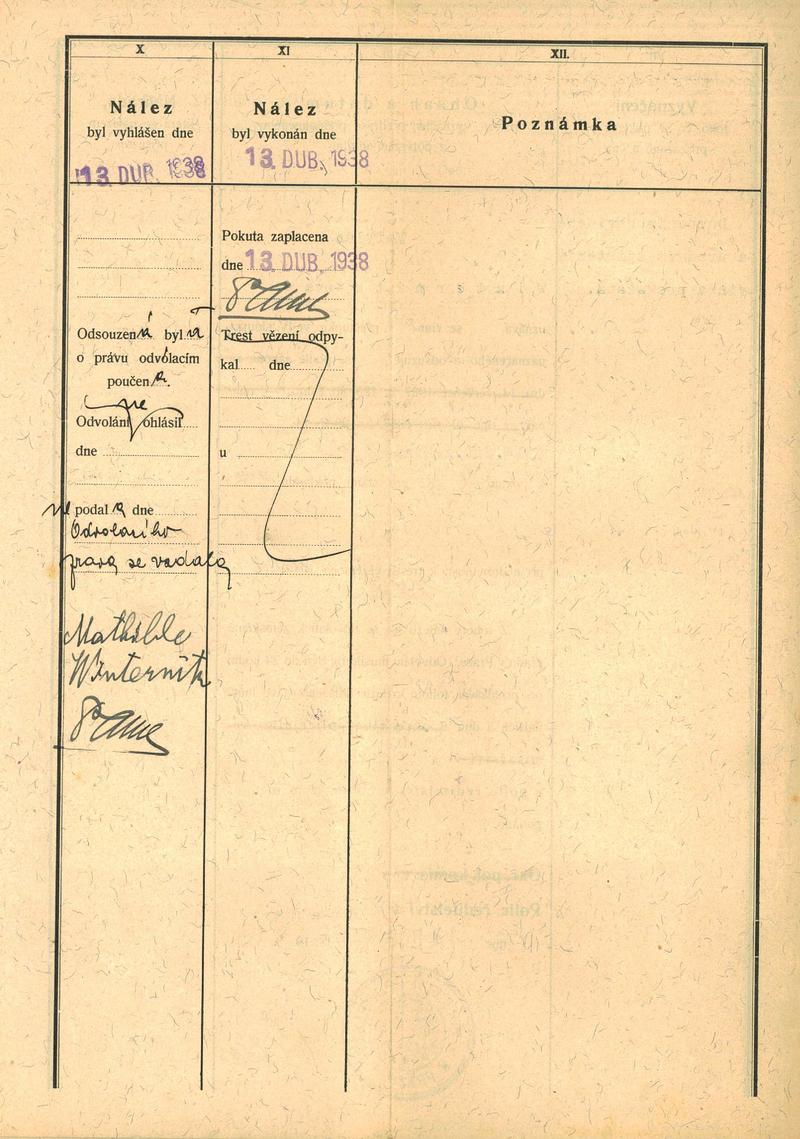 X
Nález
byl vyhlášen dne
13 DUB. 1938
Odsouzená byla
o právu odvolacím
poučena.
Odvolání ne ohlásil
dne
ne podala dne
Odvolacího
práva se vzdala
Mathilde
Winternitz
XI
Nález
byl vykonán dne
13. DUB. 1938
Pokuta zaplacena
dne 13. DUB. 1938
Trest vězení odpy-
kal dne
u
XII.
Poznámka